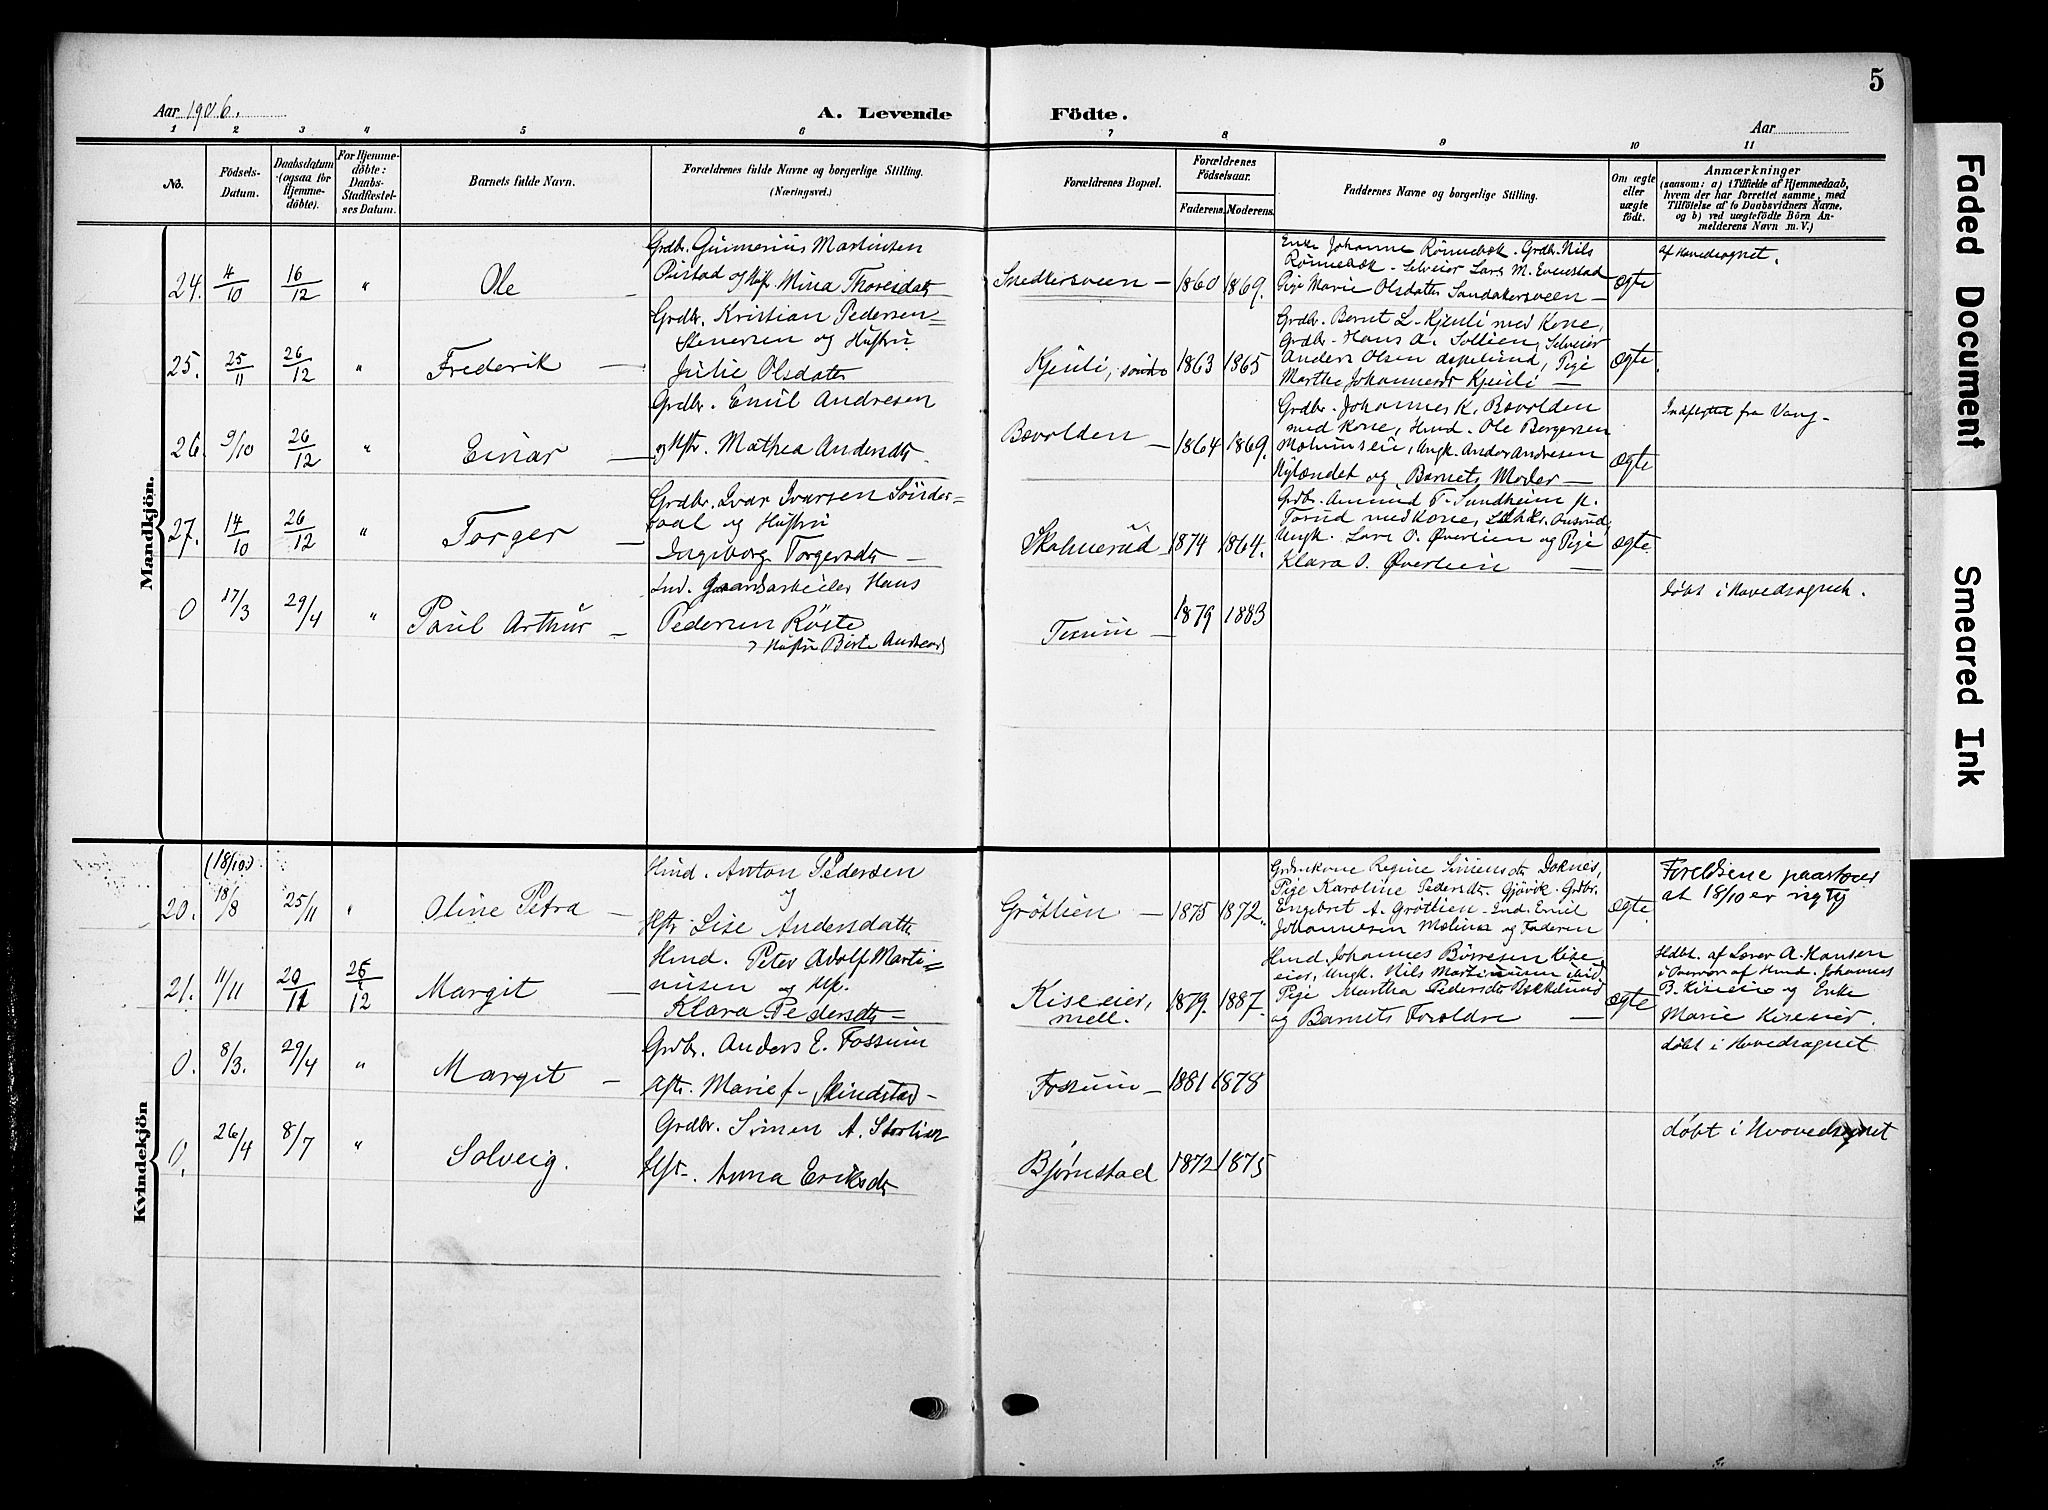 5
Aar 1906.
A. Levende Födte.
Aar
1 2 3 4 5 6 7 8 9 10 11
No.
Födsels-
Datum.
Daabsdatum
(ogsaa for
Hjemme-
döbte).
For Hjemme-
döbte:
Daabs-
Stadfæstel-
ses Datum.
Barnets fulde Navn.
Forældrenes fulde Navne og borgerlige Stilling.
(Næringsvei.)
Forældrenes Bopæl.
Forældrenes
Födselsaar.
Faderens. Moderens.
Faddernes Navne og borgerlige Stilling.
Om ægte
eller
uægte
födt.
Anmærkninger
(saasom: a) i Tilfælde af Hjemmedaab,
hvem der har forrettet samme, med
Tilföielse af to Daabsvidners Navne,
og b) ved uegtefödte Börn An-
melderens Navn m. V.)
Mandkjön.
24. 4/10 16/12 " Ole —
Grdbr. Gunnerius Martinsen
Pirstad og Hfr. Mina Thoresdatr
Snedkersveen — 1860 1869.
Enke Johanne Rönnebæk. Grdbr. Nils
Rönnebæk. Selveier Lars M. Evenstad
Pige Marie Olsdatr Sandakersveen —
ægte
af Hovedsognet.
25. 25/11 26/12 " Frederik —
Grdbr. Kristian Pedersen
Stenersen og Hustru
Julie Olsdatr
Kjenli, söndre 1863 1865
Grdbr. Bernt L. Kjenli med Kone,
Grdbr. Hans A. Sollien, Selveier
Anders Olsen Aspelund, Pige
Marthe Johannesdr Kjenli —
ægte
26. 9/10 26/12 " Einar —
Grdbr. Emil Andresen
og Hfr. Mathea Andersdtr.
Bævolden — 1864 1869.
Grdbr. Johannes K. Bævolden
med Kone, Husmd. Ole Bergersen
Ungk. Anders Andresen
Nylændet og Barnets Moder —
ægte
Indflyttet fra Vang —
27. 14/10 26/12 " Torger —
Grdbr. Ivar Ivarsen Sönder-
aal og Hustru
Ingeborg Torgersdtr —
Skolmerud 1874 1864.
Grdbr. Amund T. Sundheim
Torud med Kone,
Ungk. Lars O. Øverlien og Pige
Klara O. Øverlien —
ægte
0 17/3 29/4 " Paul Arthur —
Ind. Gaardsarbeider Hans
Pedersen Röste
Hustru Birte Andreasd
Tesum — 1879 1883
döbt i Hovedsognet.
Kvindekjön
20. (18/10) 18/8 25/11 " Oline Petra —
Husmd. Anton Pedersen
og
Hfr. Lise Andersdatr
Gröttlien — 1875 1872.
Grdbrkone Regine Simensdtr Doknes,
Pige Karoline Pedersdtr. Gjövik. Grdbr.
Engebret A. Gröttlien. Ind. Emil
Johannesen Molina og Faderen
ægte
Foreldrene paastaar
at 18/10 er rigtig
21. 11/11 20/11 26/12 Margit —
Husmd. Peter Adolf Marti-
nusen og Hfr.
Klara Pedersdtr —
Kise eier, mell. 1879. 1887.
Husmd. Johannes Börresen Kise
eier, Ungk. Nils Martinusen ibid
Pige Martha Pedersdtr Bækkelund
og Barnets Foreldre —
ægte
Hdbt. af Lærer A. Hansen
i Overvær af Husmd. Johannes
B. Kiseeie og Enke
Marie Kiseeier.
0. 8/3. 29/4 " Margit —
Grdbr. Anders E. Fossum
Hfr. Marie f. Skindstad —
Fossum — 1881 1878
döbt i Hovedsognet
0. 26/4 8/7 " Solveig.
Grdbr. Simen A. Storlien
Hfr. Anna Eriksdtr
Bjørnstad 1872 1875
døbt i Hovedsognet
Faded Document
Smeared Ink